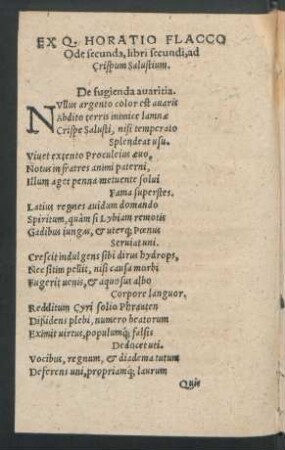 EX Q. HORATIO FLACCO
Ode secunda, libri secundi, ad
Crispum Salustium.
De fugienda auaritia.
NVllus argento color est auaris
Abdito terris inimice lamnæ
Crispe Salusti, nisi temperato
Splendeat usu.
Viuet extento Proculeius æuo,
Notus in fratres animi paterni,
Illum aget penna metuente solui
Fama superstes.
Latius regnes auidum domando
Spiritum, quàm si Lybiam remotis
Gadibus iungas, & uterq; Pœnus
Seruiat uni.
Crescit indulgens sibi dirus hydrops,
Nec sitim pellit, nisi causa morbi
Fugerit uenis, & aquosus albo
Corpore languor.
Redditum Cyri solio Phraaten
Dissidens plebi, numero beatorum
Eximit uirtus, populumq; falsis
Dedocet uti.
Vocibus, regnum, & diadema tutum
Deferens uni, propriamq; laurum
Quis